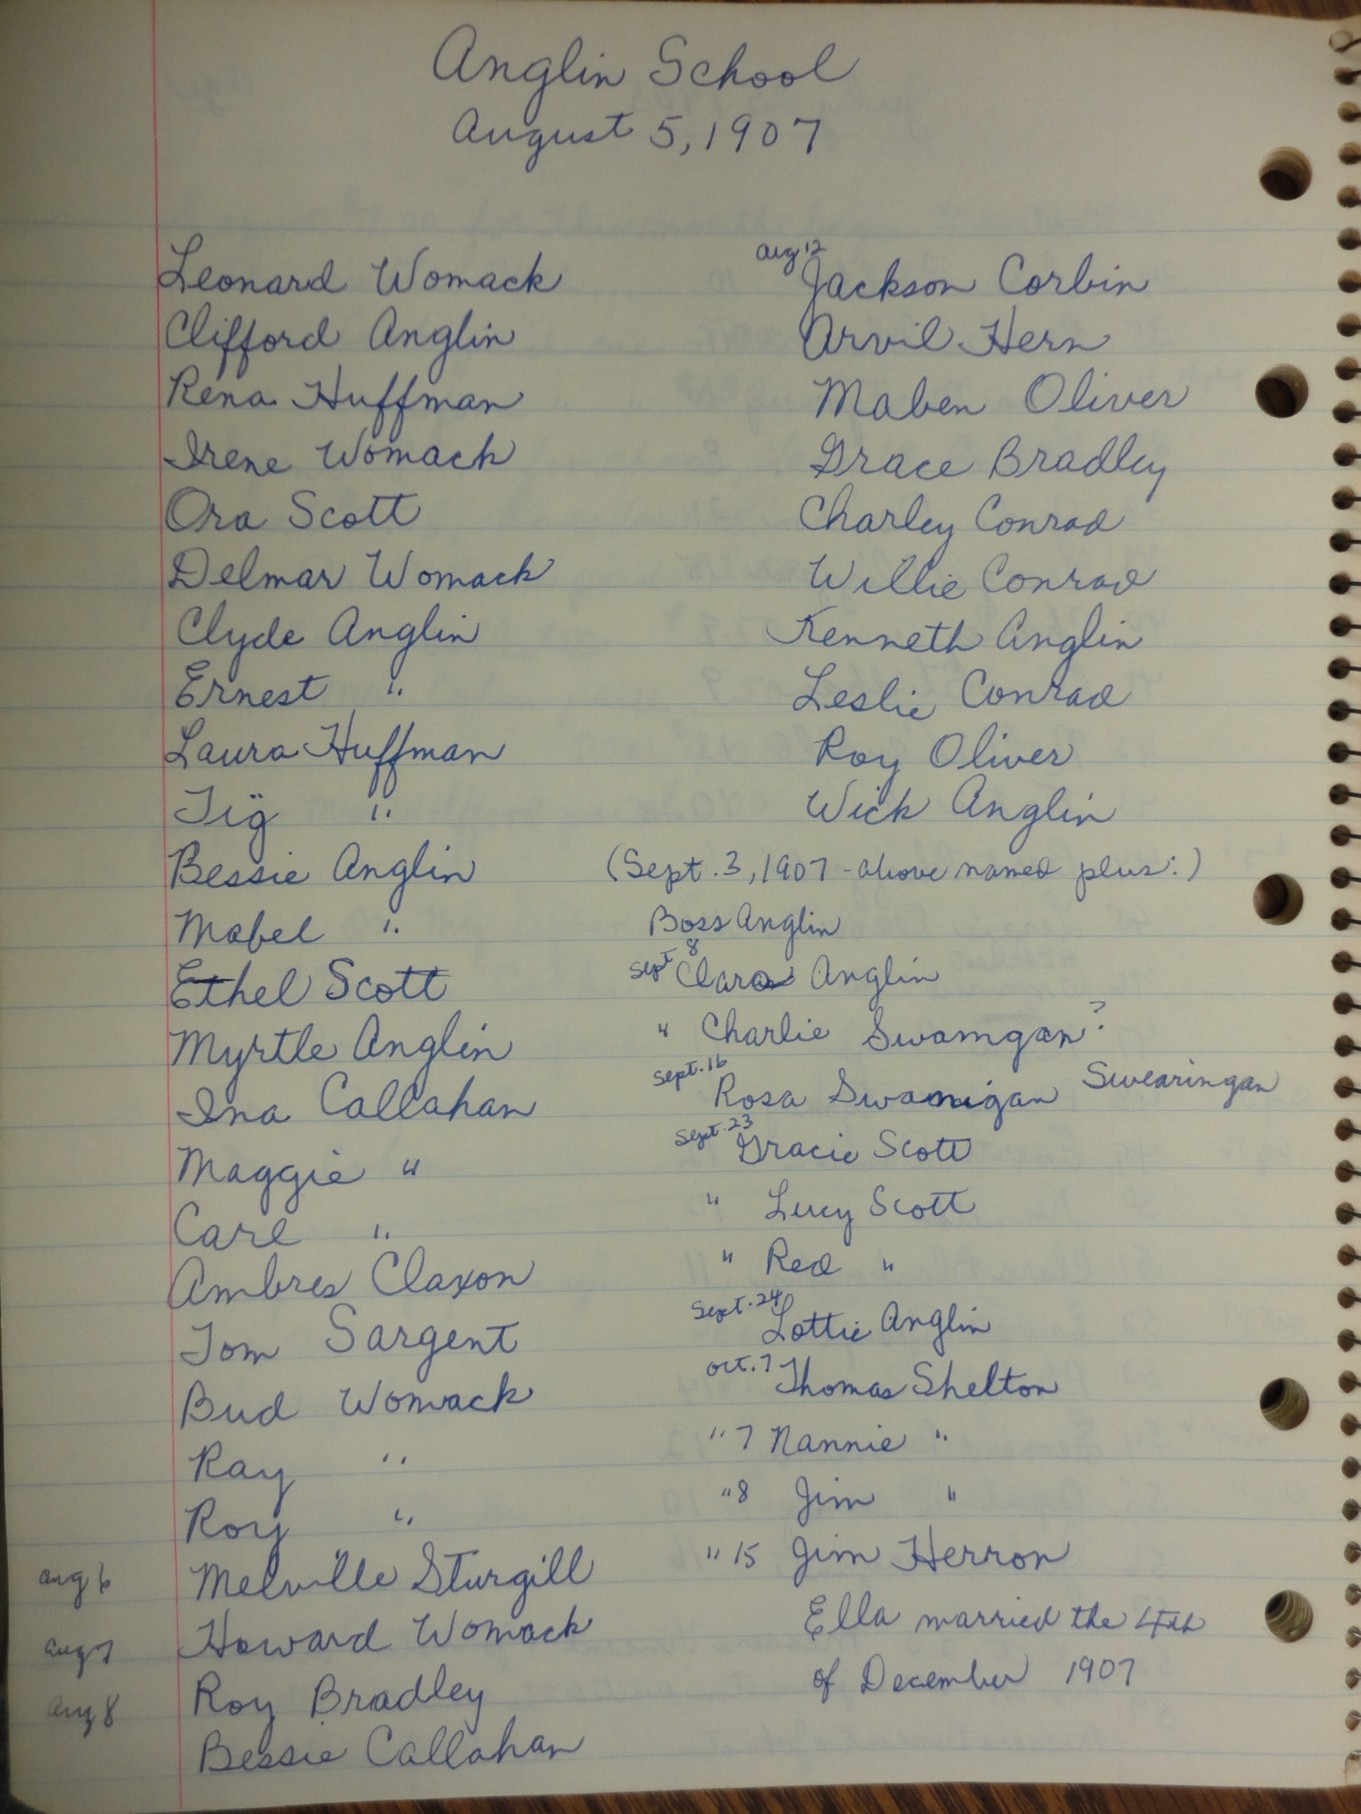 Anglin School
August 5, 1907
Leonard Womack
Clifford Anglin
Rena Huffman
Irene Womack
Ora Scott
Delmar Womack
Clyde Anglin
Ernest "
Laura Huffman
Tig "
Bessie Anglin
Mabel "
Ethel Scott
Myrtle Anglin
Ina Callahan
Maggie "
Carl "
Ambres Claxon
Tom Sargent
Bud Womack
Ray "
Roy "
Aug 6 Melville Sturgill
Aug 7 Howard Womack
Aug 8 Roy Bradley
Bessie Callahan
Aug 12 Jackson Corbin
Arvil Hern
Maben Oliver
Grace Bradley
Charley Conrad
Willie Conrad
Kenneth Anglin
Leslie Conrad
Roy Oliver
Wick Anglin
(Sept. 3, 1907 - above named plus:)
Boss Anglin
Sept 8 Clara Anglin
" Charlie Swamgan?
Sept. 16 Rosa Swamigan Swearingan
Sept. 23 Gracie Scott
" Lucy Scott
" Red "
Sept. 24 Lottie Anglin
Oct. 7 Thomas Shelton
" 7 Nannie "
" 8 Jim "
" 15 Jim Herron
Ella married the 4th
of December 1907